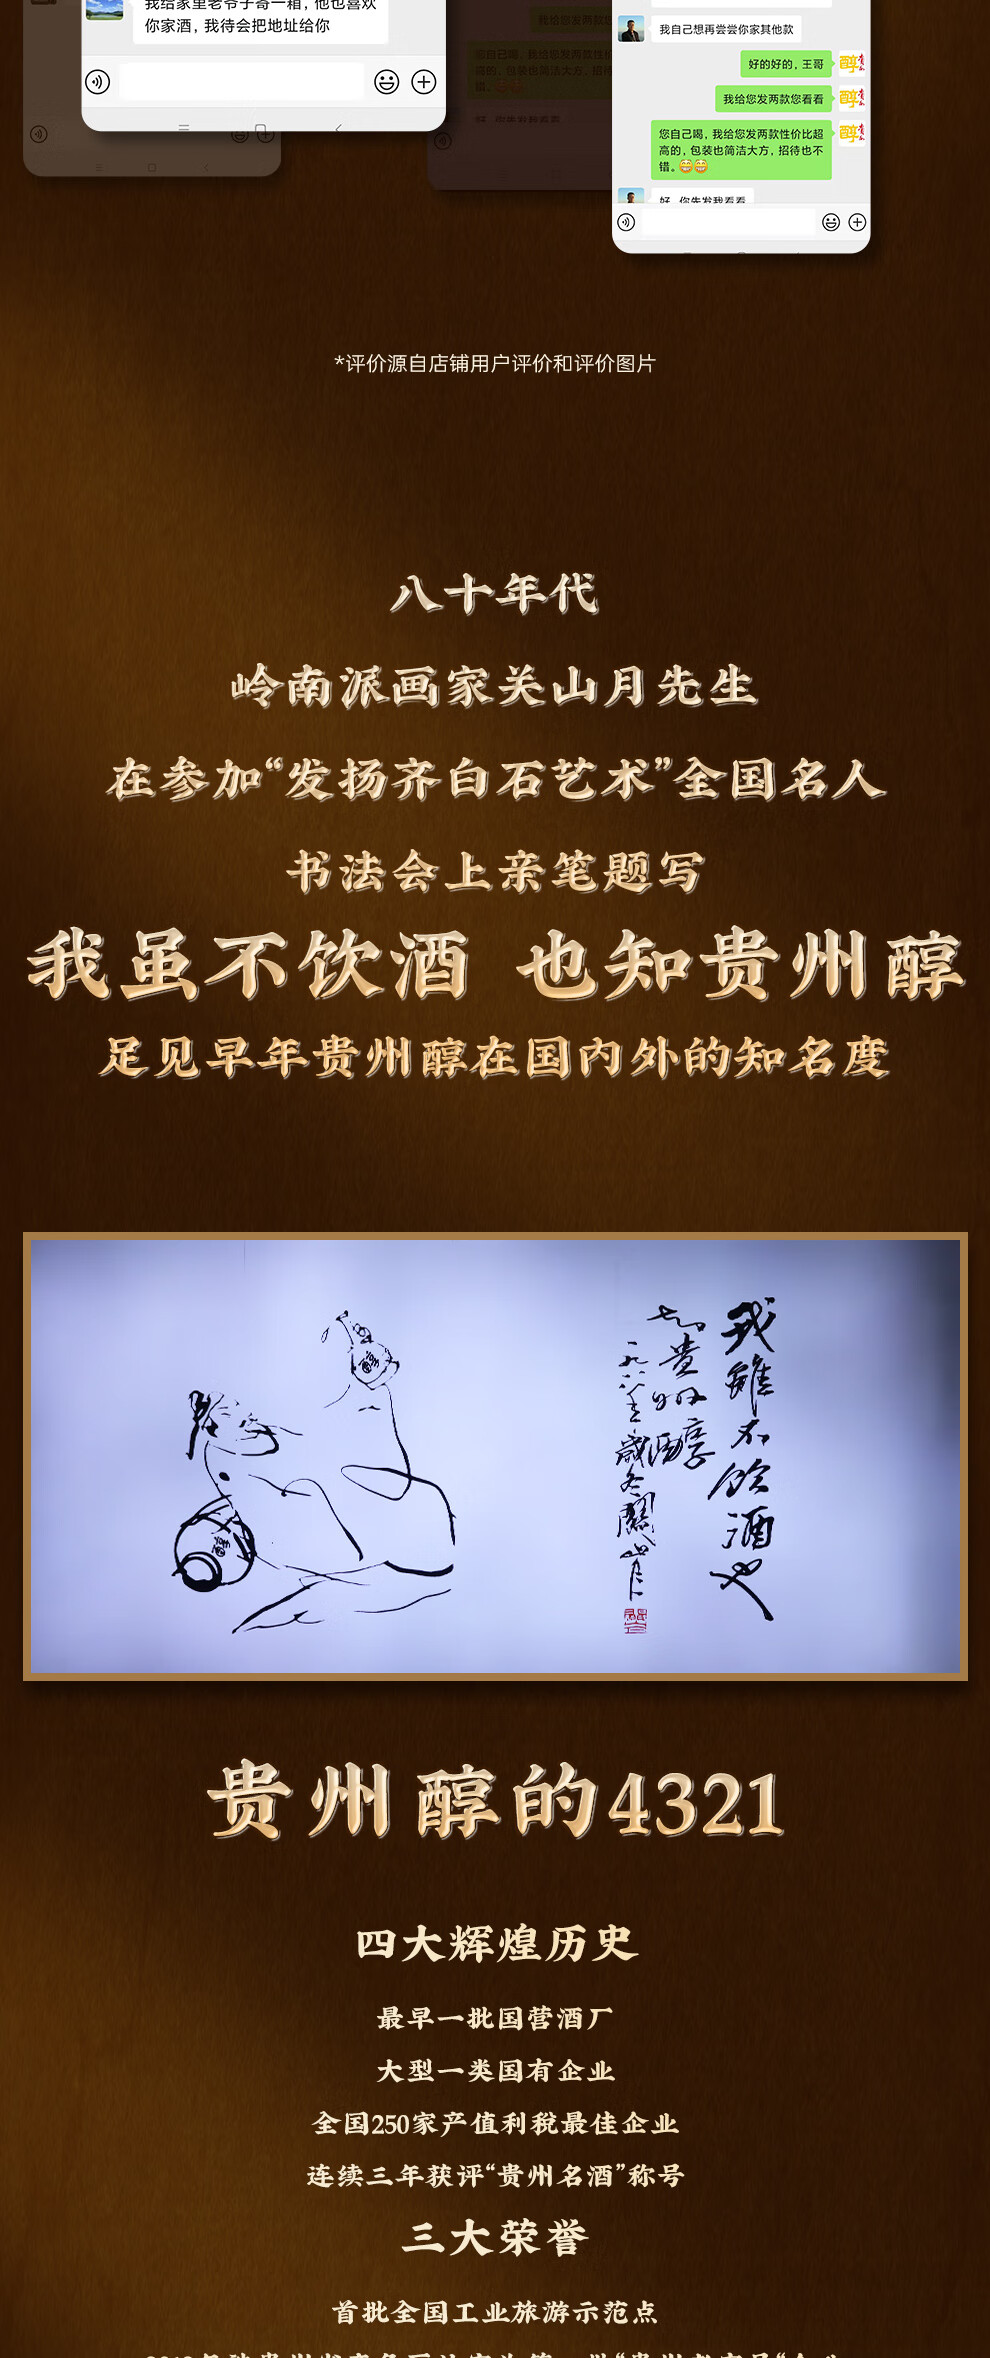 我给家里老爷子寄一箱，他也喜欢
你家酒，我待会把地址给你
我自己想再尝尝你家其他款
好的好的，王哥
我给您发两款您看看
您自己喝，我给您发两款性价比超
高的，包装也简洁大方，招待也不
错。😁😁
好，你先发我看看
*评价源自店铺用户评价和评价图片
八十年代
岭南派画家关山月先生
在参加“发扬齐白石艺术”全国名人
书法会上亲笔题写
我虽不饮酒 也知贵州醇
足见早年贵州醇在国内外的知名度
我雖不飲酒也
知貴州醇
一九八八年歲冬關山月
醇
醇
贵州醇的4321
四大辉煌历史
最早一批国营酒厂
大型一类国有企业
全国250家产值利税最佳企业
连续三年获评“贵州名酒”称号
三大荣誉
首批全国工业旅游示范点